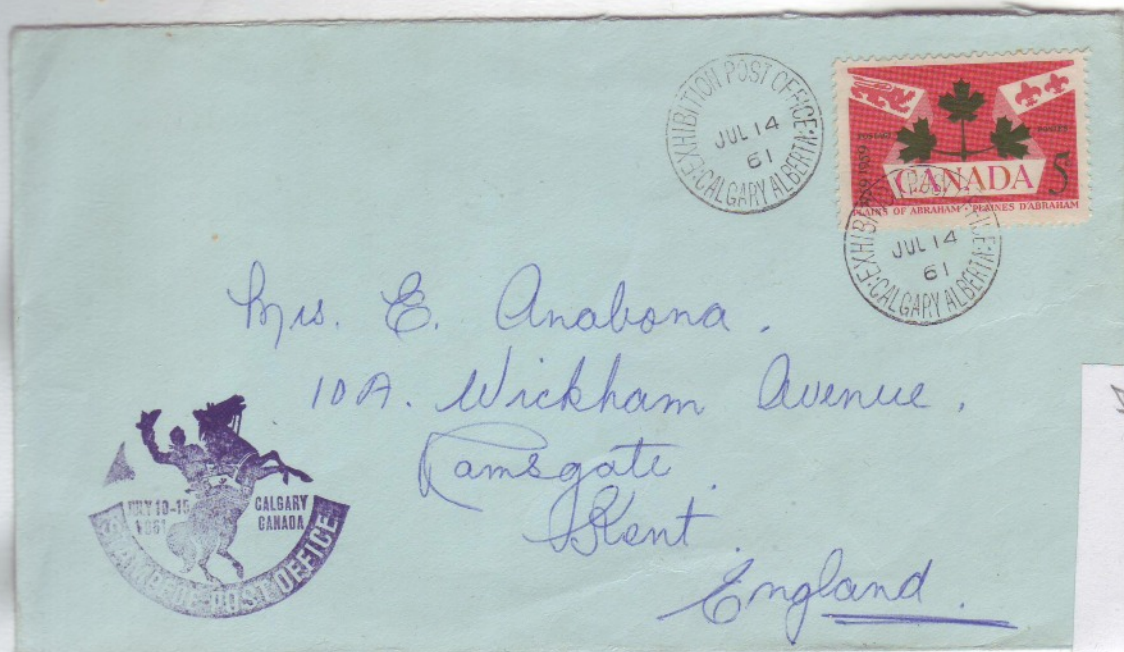 EXHIBITION POST OFFICE
JUL 14
61
CALGARY ALBERTA
POSTAGE POSTES
1759 1959
CANADA 5
PLAINS OF ABRAHAM · PLAINES D'ABRAHAM
EXHIBITION POST OFFICE
JUL 14
61
CALGARY ALBERTA
Mrs. E. Anabona.
10A. Wickham Avenue.
Ramsgate.
Kent.
England.
JULY 10-15
1961
CALGARY
CANADA
STAMPEDE POST OFFICE